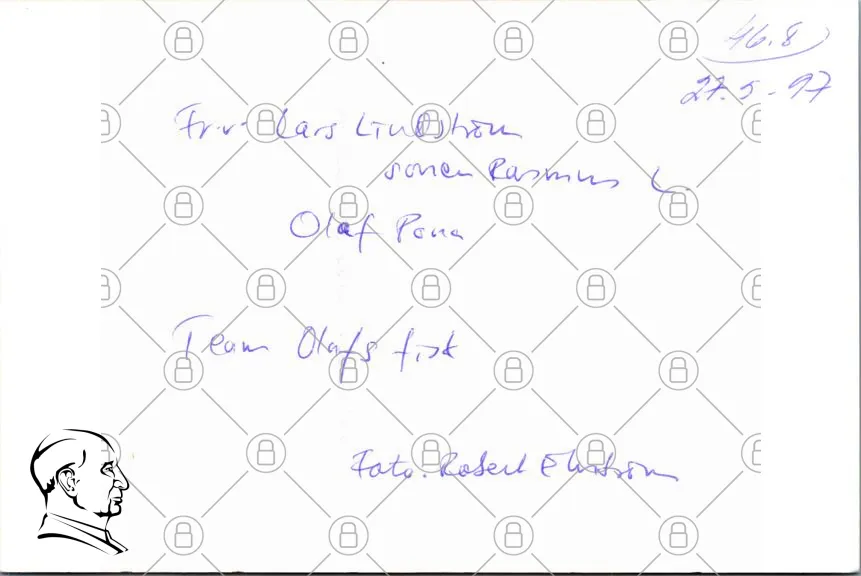 46.8
27.5-97
Fr.v. Lars Lindström
sonen Rasmus L.
Olaf
Team Olafs fisk
Foto. Robert